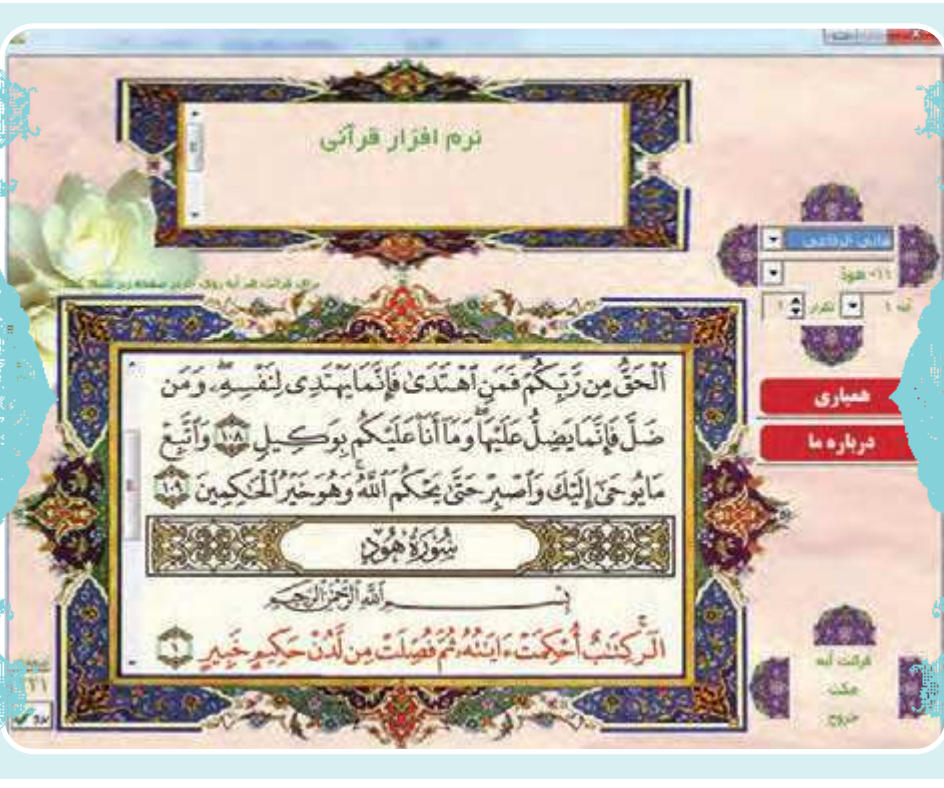 نرم افزار قرآنی
هانی الرفاعی
۱۱- هود
آیه ۱ تکرار ۱
همیاری
درباره ما
ٱلۡحَقُّ مِن رَّبِّكُمۡۖ فَمَنِ ٱهۡتَدَىٰ فَإِنَّمَا يَهۡتَدِي لِنَفۡسِهِۦۖ وَمَن
ضَلَّ فَإِنَّمَا يَضِلُّ عَلَيۡهَاۖ وَمَآ أَنَا۠ عَلَيۡكُم بِوَكِيلٖ ١٠٨ وَٱتَّبِعۡ
مَا يُوحَىٰٓ إِلَيۡكَ وَٱصۡبِرۡ حَتَّىٰ يَحۡكُمَ ٱللَّهُۚ وَهُوَ خَيۡرُ ٱلۡحَٰكِمِينَ ١٠٩
سُورَةُ هُودٍ
بِسۡمِ ٱللَّهِ ٱلرَّحۡمَٰنِ ٱلرَّحِيمِ
الٓرۚ كِتَٰبٌ أُحۡكِمَتۡ ءَايَٰتُهُۥ ثُمَّ فُصِّلَتۡ مِن لَّدُنۡ حَكِيمٍ خَبِيرٍ ١
قرائت آیه
مکث
خروج